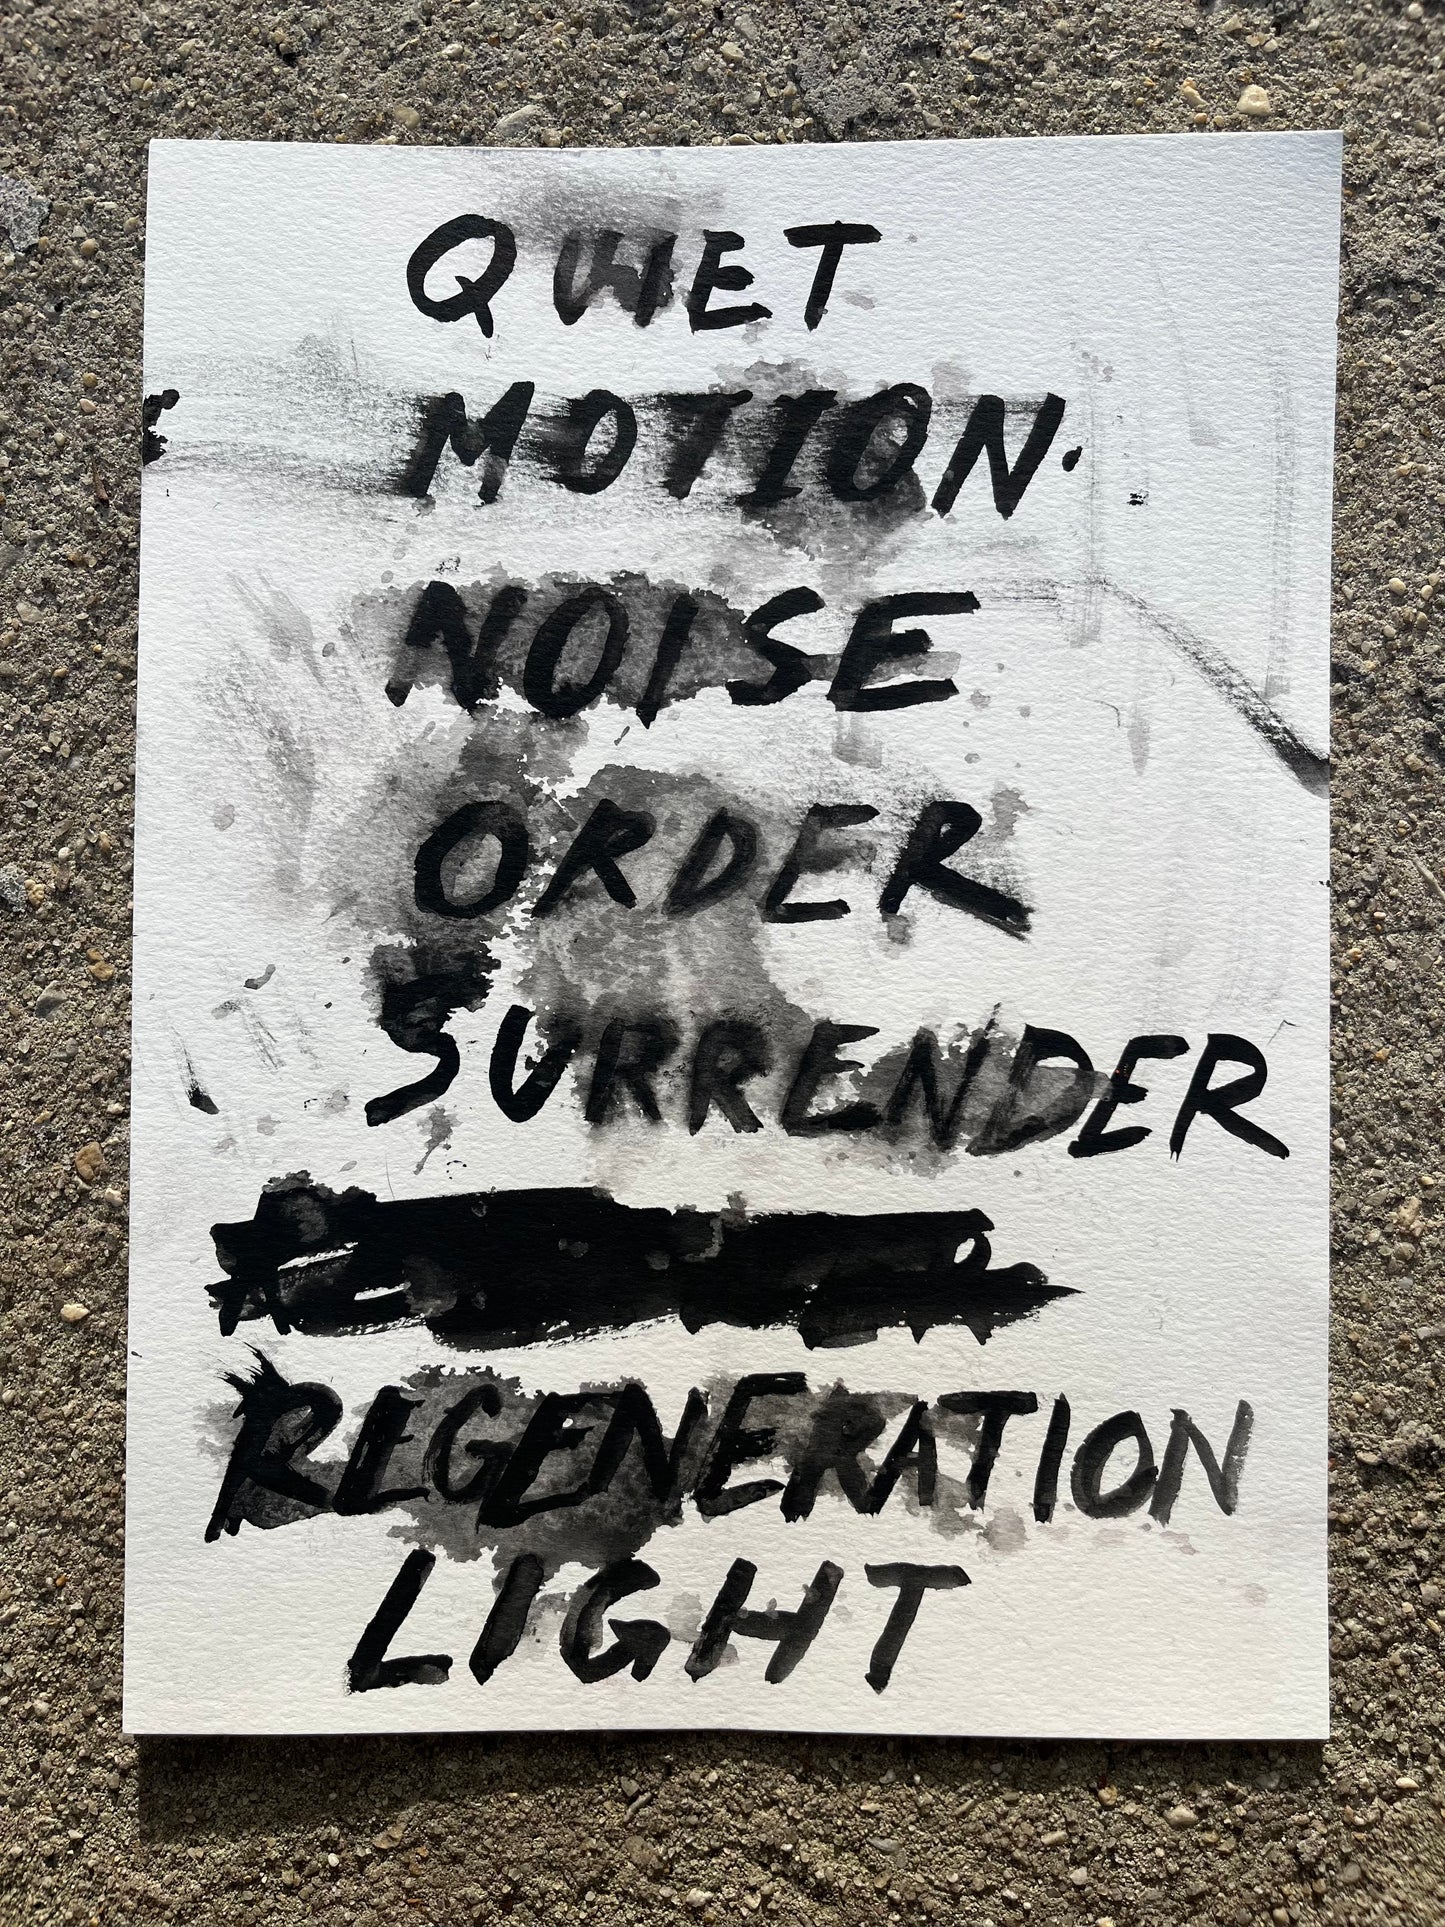 QUIET
MOTION.
NOISE
ORDER
SURRENDER
REGENERATION
LIGHT